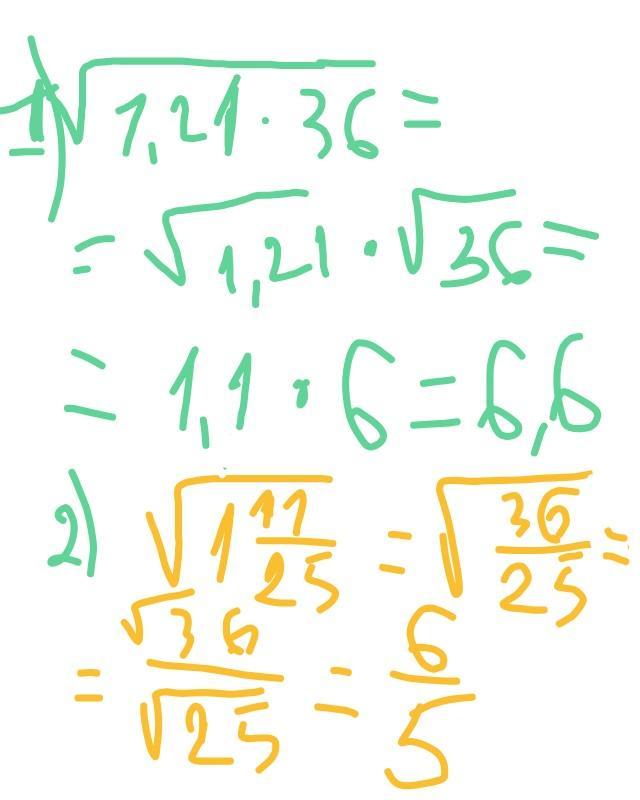 1) √1,21 · 36 =
= √1,21 · √36 =
= 1,1 · 6 = 6,6
2) √1 11/25 = √36/25 =
= √36/√25 = 6/5